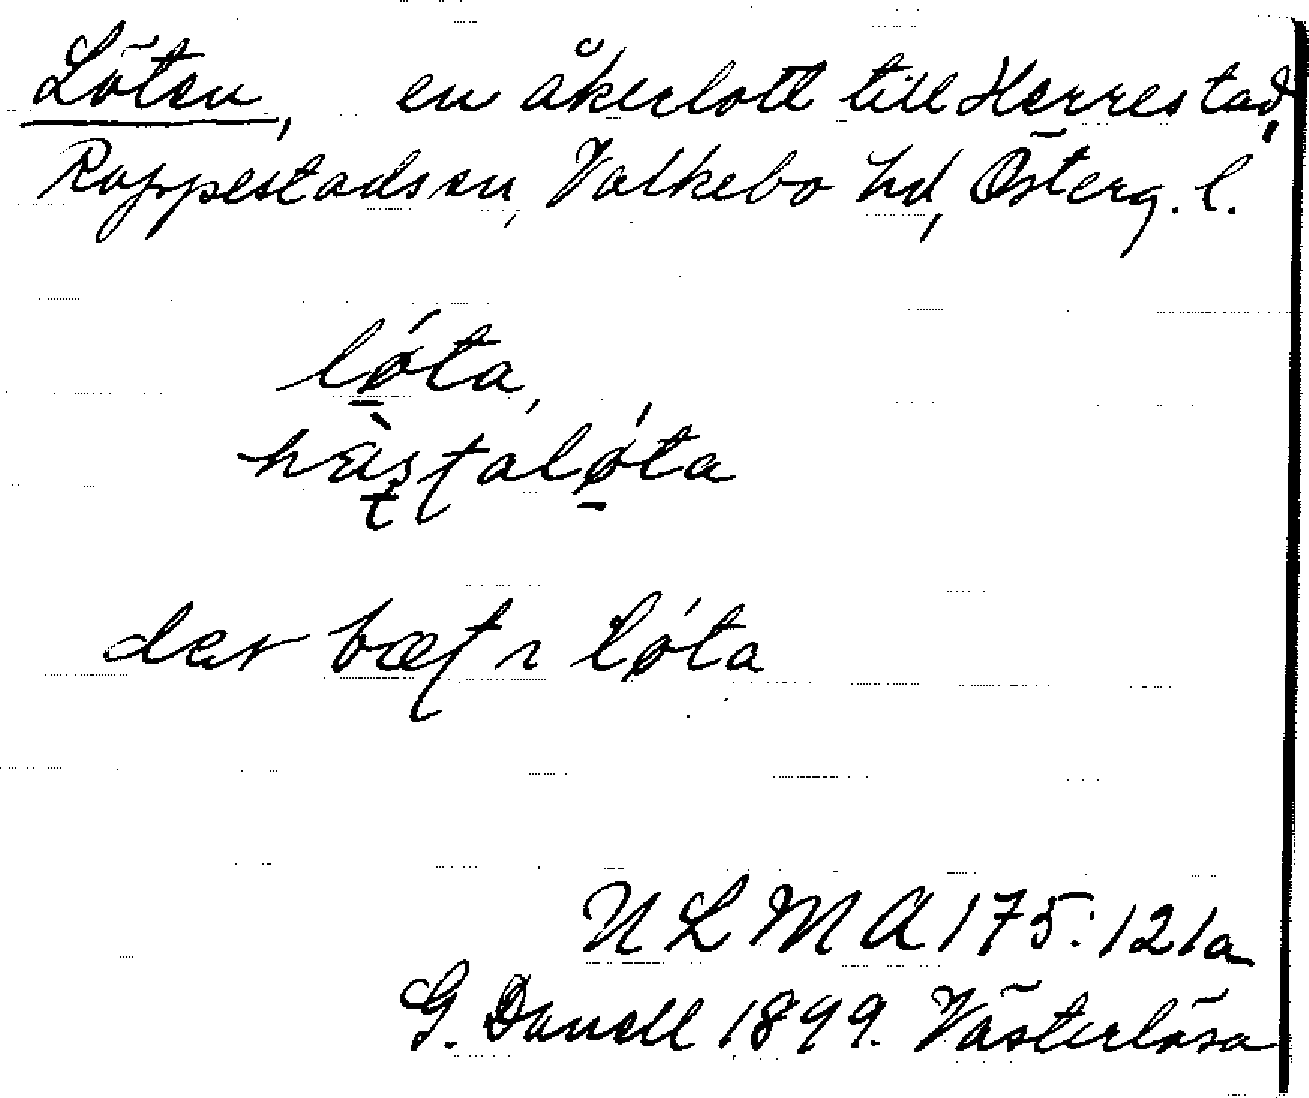 Löten, en åkerlott till Herrestad,
Rappestads sn, Valkebo hd, Österg. l.
lǿta,
hàstalǿta
der bæstr lǿta
ULMA 175:121a
G. Danell 1899. Västerlösa